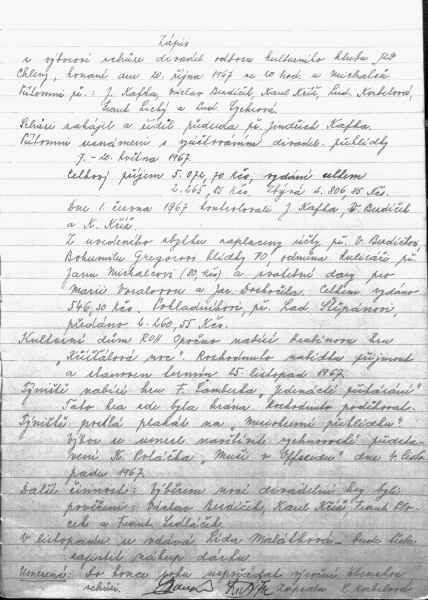 Zápis
z výborové schůze divadel. odboru kulturního klubu
Chleny, konané dne 20. října 1967 ve 20 hod. u Michalců.
Přítomni př.: J. Kafka, Václav Bedlich, Karel Kříž, Lud. Korbelová,
Frant. Lichý a Lud.
Schůzi zahájil a řídil předseda př. Jindřich Kafka.
Přítomni seznámeni s vyúčtováním divadel. přehlídky
7. - 20. května 1967.
Celkový příjem 5.072,70 Kčs, vydání celkem
2.265,85 Kčs. Zbývá 2.806,85 Kčs.
Dne 1. června 1967 kontrolovali J. Kafka, V.
a K. Kříž.
Z uvedeného zbytku zaplaceny účty př. V.
Bohumilu Gregorovi hlídky 70, odměna kulisáři př.
Janu Michalcovi (80,- Kčs) a svatební dary pro
Marii a Jar. Celkem vydáno
546,30 Kčs. Pokladníkovi, př. Lad. Štěpánovi,
předáno 2.260,55 Kčs.
Kulturní dům ROH Opočno nabízí hru
"Křišťálová noc". Rozhodnuto nabídku přijmout
a stanoven termín 25. listopad 1967.
Týniště nabízí hru F. Šamberka "Jedenácté přikázání".
Tato hra zde byla hrána. Rozhodnuto poděkovat.
Týniště posílá plakát na přehlídku".
Výbor se usnesl navštívit rychnovské předsta-
vení K. Poláčka "Muži v offsidu" dne 4. listo-
padu 1967.
Další činnost: Výběrem nové divadelní hry byli
pověřeni: Václav, Karel Kříž, Frant.
a Frant. Sedláček.
V listopadu se vdává Lída Malátková - bude třeba
zajistit nákup dárku.
Usnesení: Do konce roku uspořádat výroční členskou
schůzi. Zapsala L. Korbelová